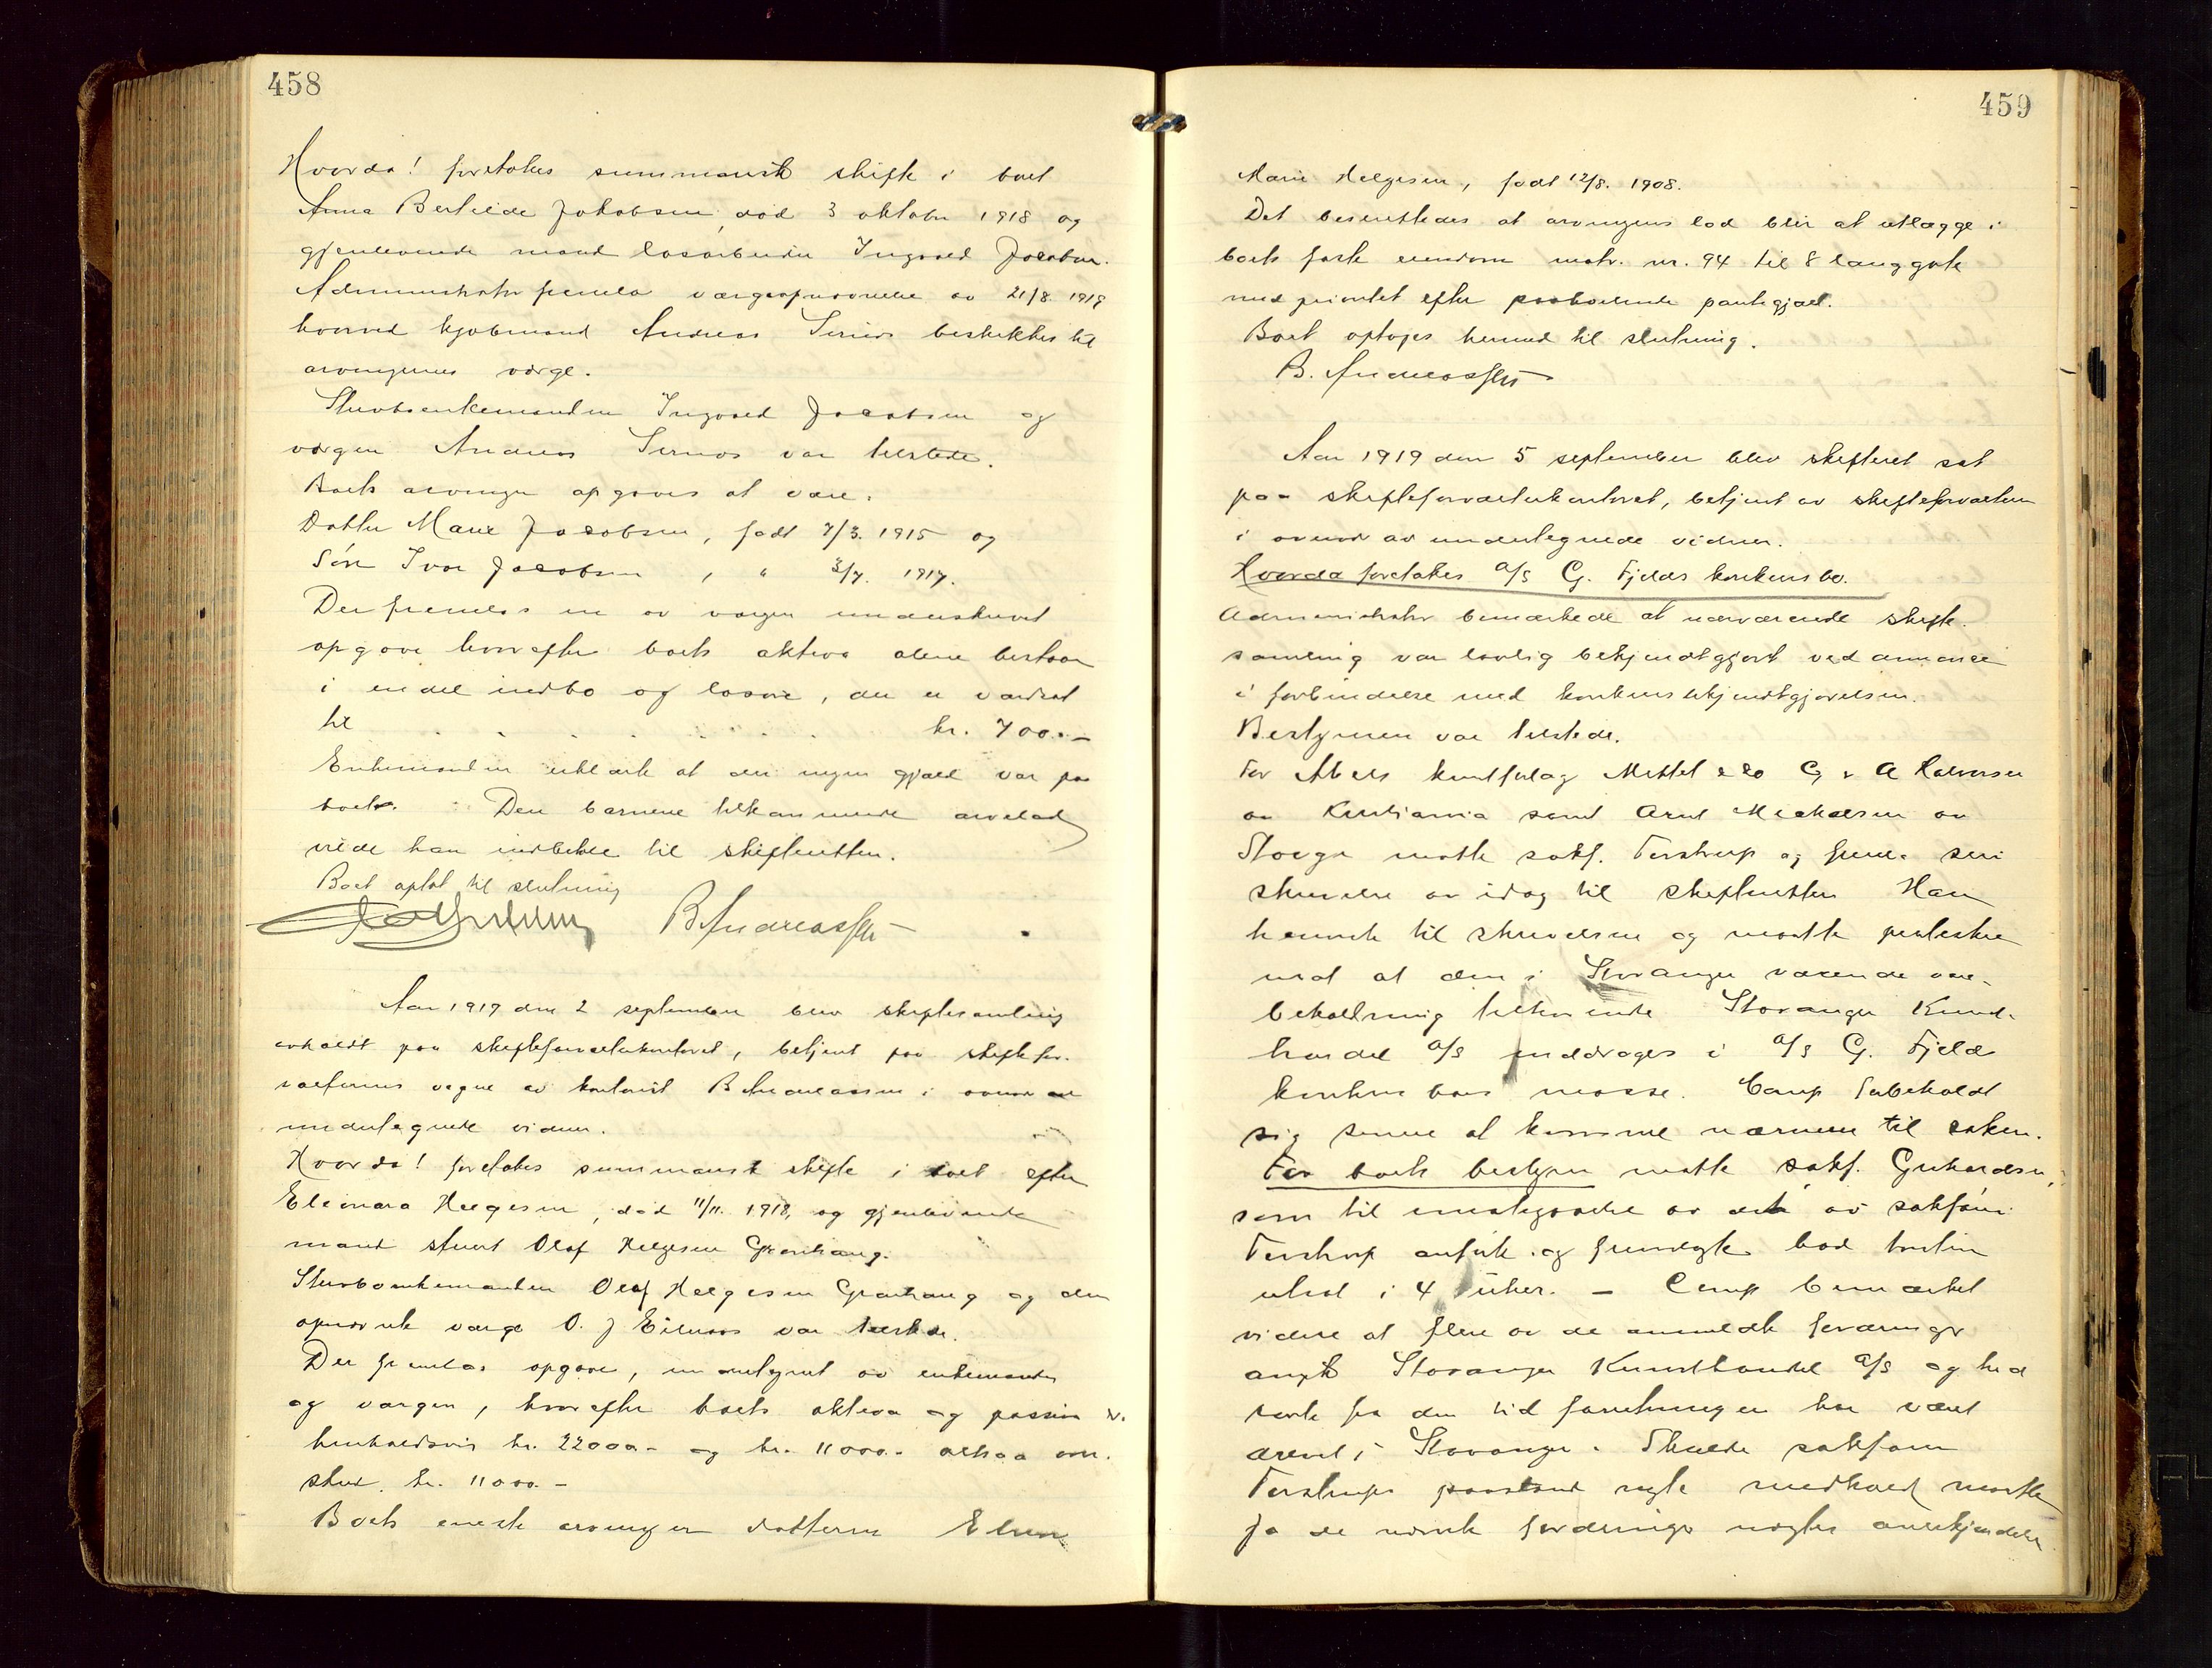 458
Hvorda! foretokes summarisk skifte i boet
Anna Bertilde Jakobsen, død 3 oktober 1918 og
gjenlevende mand løsarbeider Ingvald Jacobsen.
Administrator fremla værgeopnævnelse av 21/8. 1919
hvorved kjøbmand Andreas beskikkes til
arvingernes værge.
Stervboenkemanden Ingvald Jacobsen og
værgen Andreas var tilstede.
Boets arvinger opgaves at være:
Datter Marie Jacobsen, født 7/3. 1915 og
Søn Ivar Jacobsen , " 3/7. 1917.
Der fremlas en av værgen underskrevet
opgave hvorefter boets aktiva alene bestaar
i endel indbo og løsøre, der er værdsat
til . . . . . . . kr. 700.-
Enkemanden erklærte at der ingen gjæld var paa
boet. Den barnene tilkommende arvelod
vilde han indbetale til skifteretten.
Boet optat til slutning
B. Andreassen
Aar 1919 den 2 september blev skiftesamling
avholdt paa skifteforvalterkontoret, betjent paa skiftefor-
valterens vegne av kontorist B. Andreassen i overvær av
undertegnede vidner.
Hvorda! foretokes summarisk skifte i boet efter
Eleonora Helgesen, død 11/11. 1918, og gjenlevende
mand stuert Olaf Helgesen Grønhaug.
Stervboenkemanden Olaf Helgesen Grønhaug og den
opnævnte værge O. J. var tilstede.
Der fremlas opgave, undertegnet av enkemanden
og værgen, hvorefter boets aktiva og passiva er
henholdsvis kr. 22000.- og kr. 11000.- altsaa over-
skud. kr. 11000.-
Boets eneste arving er datteren Elen
459
Marie Helgesen, født 12/8. 1908.
Det besluttedes at arvingens lod blir at utlægge i
boets faste eiendom matr. nr. 94 til 8 langgate
med prioritet efter paahvilende pantegjæld.
Boet optages hermed til slutning.
B. Andreassen
Aar 1919 den 5 september blev skifteret sat
paa skifteforvalterkontoret, betjent av skifteforvalteren
i overvær av undertegnede vidner.
Hvorda foretokes A/S G. Fjelds konkursbo.
Administrator bemærkede at nærværende skifte-
samling var lovlig bekjendtgjort ved annonce
i forbindelse med konkursbekjendtgjørelsen.
Bestyreren var tilstede.
For Abels kunstforlag Mittet & Co G & A Halvorsen
av Kristiania samt Arnt Mickelsen av
møtte sakf. Terstrup og fremla sin
skrivelse av idag til skifteretten Han
henviste til skrivelsen og maatte protestere
mot at den i Stavanger værende vare-
beholdning tilhørende Stavanger Kunst-
handel A/S inddrages i A/S G. Fjeld
konkursboes masse. Comp forbeholdt
sig senere at komme nærmere til saken.
For boets bestyrer møtte sakf. Gerhardsen,
som til imøtegaaelse av det av sakfører
Terstrup anførte og fremlagte bad
utsat i 4 uker. - Comp bemærket
videre at flere av de anmeldte fordringer
angik Stavanger Kunsthandel A/S og hid-
rørte fra den tid forretningen har været
drevet i Stavanger. Skulde sakfører
Terstrups paastand nyde medhold maatte
jo de nævnte fordringer nægtes anerkjendelse